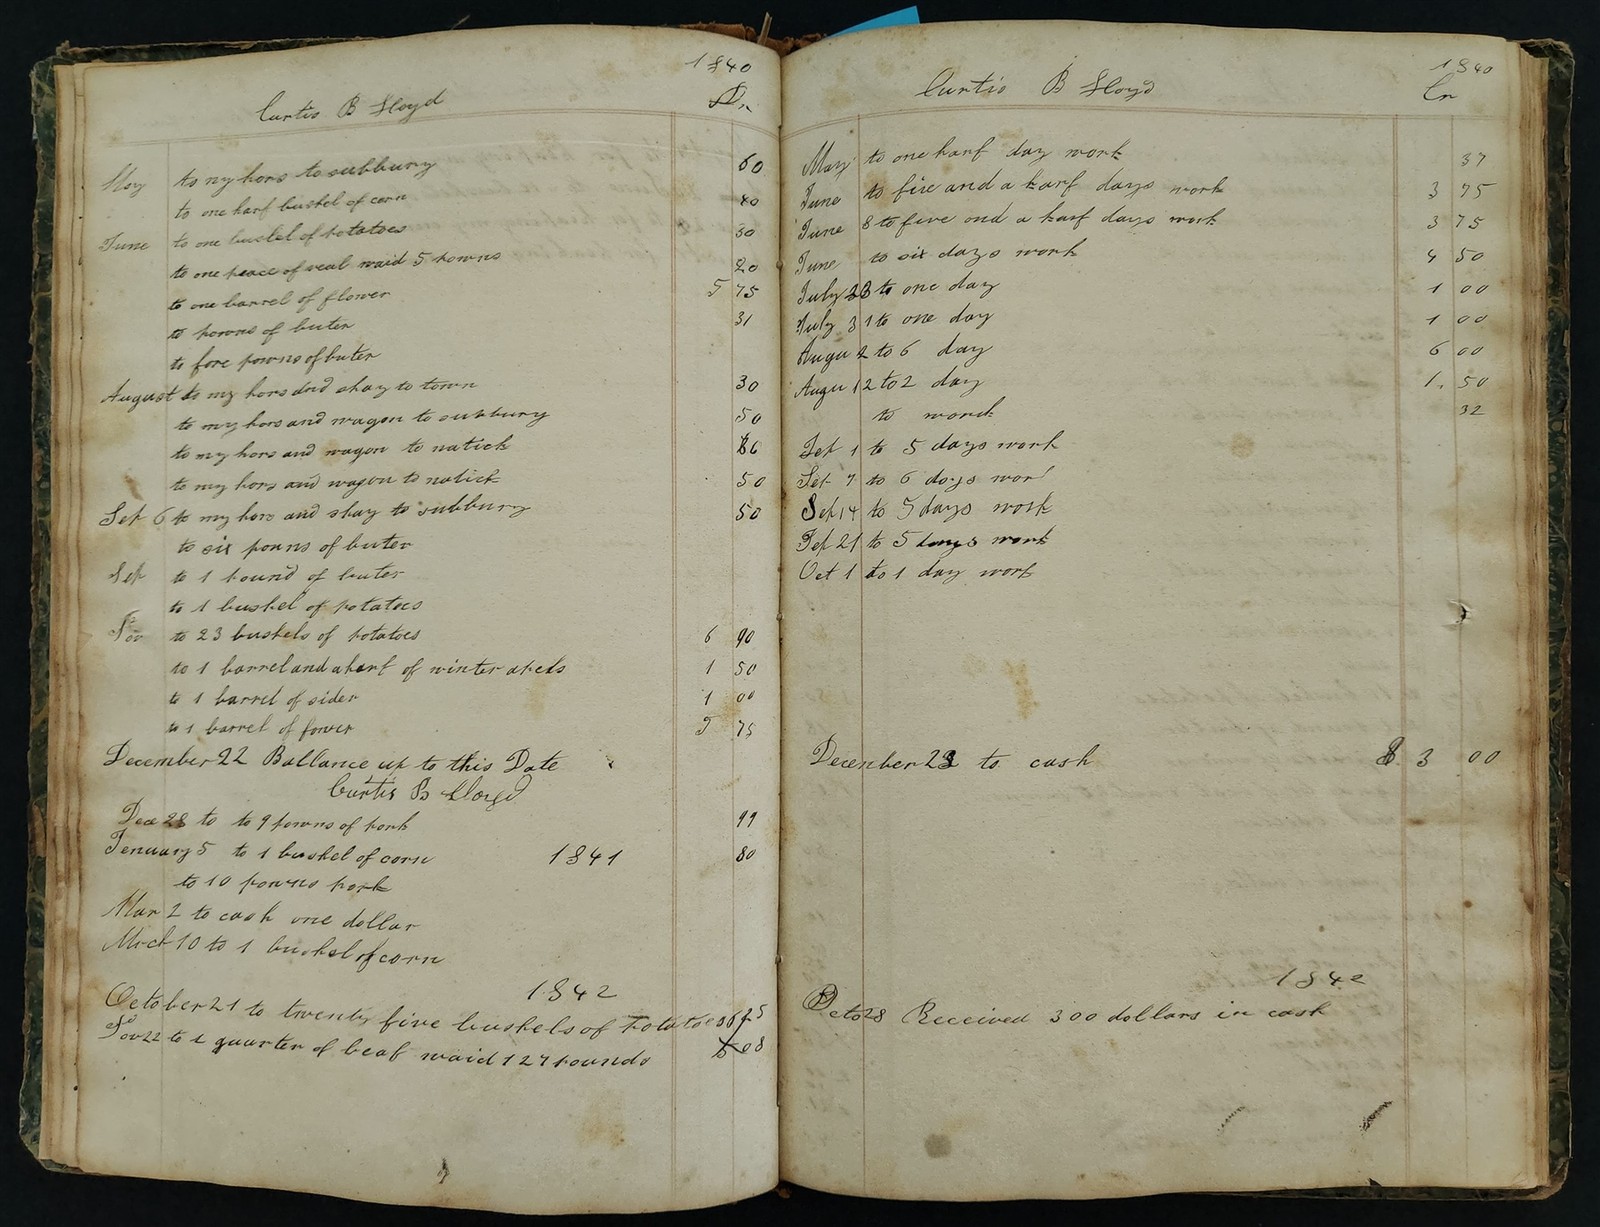 1840
Curtis B Lloyd Dr
May to my hors to subbury 60
to one harf bushel of corn 40
June to one bushel of potatoes 30
to one peace of veal waid 5 powns 20
to one barrel of flower 5 75
to powns of buter 31
to fore powns of buter
August to my hors and shay to town 30
to my hors and wagon to subbury 50
to my hors and wagon to natick 86
to my hors and wagon to natick 50
Sep 6 to my hors and shay to subbury 50
to six pouns of buter
Sep to 1 pound of buter
to 1 bushel of potatoes
Nov to 23 bushels of potatoes 6 90
to 1 barrel and a harf of winter apels 1 50
to 1 barrel of sider 1 00
to 1 barrel of fower 5 75
December 22 Ballance up to this Date
Curtis B Lloyd
Dec 28 to to 9 powns of pork 99
Jenuary 5 to 1 bushel of corn 1841 80
to 10 powns pork
Mar 2 to cash one dollar
Mrch 10 to 1 bushel of corn
1842
October 21 to twenty five bushels of potatoes 6 25
Nov 22 to 1 quarter of beaf waid 127 pounds 08
1840
Curtis B Lloyd Cr
May to one harf day work 37
June to five and a harf days work 3 75
June 8 to five and a harf days work 3 75
June to six days work 4 50
July 23 to one day 1 00
July 31 to one day 1 00
Augu 2 to 6 day 6 00
Augu 12 to 2 day 1. 50
to work 32
Sep 1 to 5 days work
Sep 7 to 6 days wor
Sep 14 to 5 days work
Sep 21 to 5 days work
Oct 1 to 1 day work
December 23 to cash $ 3 00
1842
Octo 28 Received 300 dollars in cash